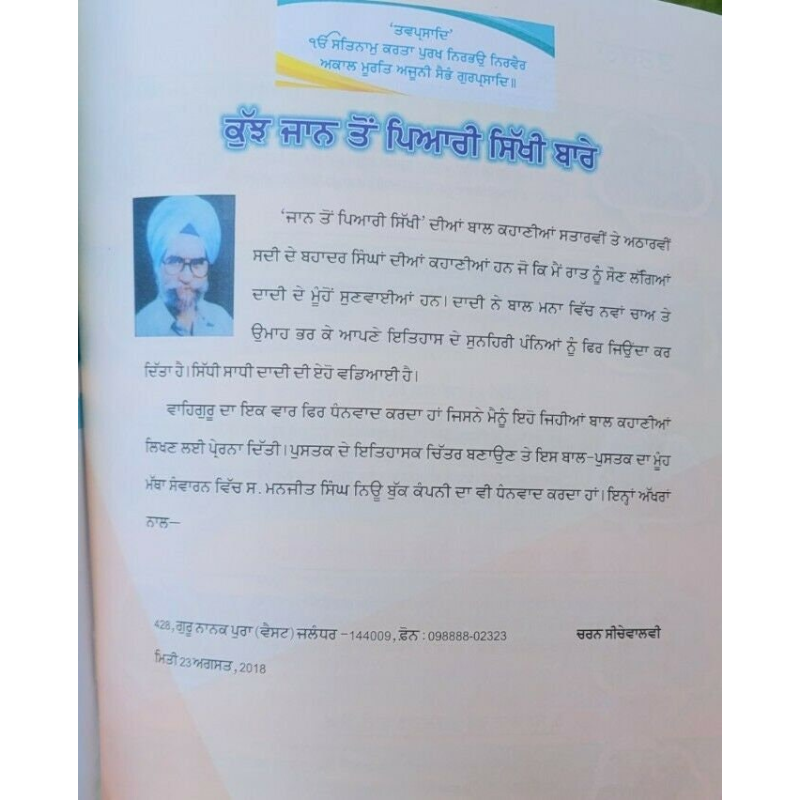 'ਤਵਪ੍ਰਸਾਦਿ'
ੴ ਸਤਿਨਾਮੁ ਕਰਤਾ ਪੁਰਖ ਨਿਰਭਉ ਨਿਰਵੈਰ
ਅਕਾਲ ਮੂਰਤਿ ਅਜੂਨੀ ਸੈਭੰ ਗੁਰਪ੍ਰਸਾਦਿ॥
ਕੁੱਝ ਜਾਨ ਤੋਂ ਪਿਆਰੀ ਸਿੱਖੀ ਬਾਰੇ
'ਜਾਨ ਤੋਂ ਪਿਆਰੀ ਸਿੱਖੀ' ਦੀਆਂ ਬਾਲ ਕਹਾਣੀਆਂ ਸਤਾਰਵੀਂ ਤੇ ਅਠਾਰਵੀਂ
ਸਦੀ ਦੇ ਬਹਾਦਰ ਸਿੰਘਾਂ ਦੀਆਂ ਕਹਾਣੀਆਂ ਹਨ ਜੋ ਕਿ ਮੈਂ ਰਾਤ ਨੂੰ ਸੌਣ ਲੱਗਿਆਂ
ਦਾਦੀ ਦੇ ਮੂੰਹੋਂ ਸੁਣਵਾਈਆਂ ਹਨ। ਦਾਦੀ ਨੇ ਬਾਲ ਮਨਾ ਵਿੱਚ ਨਵਾਂ ਚਾਅ ਤੇ
ਉਮਾਹ ਭਰ ਕੇ ਆਪਣੇ ਇਤਿਹਾਸ ਦੇ ਸੁਨਹਿਰੀ ਪੰਨਿਆਂ ਨੂੰ ਫਿਰ ਜਿਉਂਦਾ ਕਰ
ਦਿੱਤਾ ਹੈ। ਸਿੱਧੀ ਸਾਧੀ ਦਾਦੀ ਦੀ ਏਹੋ ਵਡਿਆਈ ਹੈ।
ਵਾਹਿਗੁਰੂ ਦਾ ਇਕ ਵਾਰ ਫਿਰ ਧੰਨਵਾਦ ਕਰਦਾ ਹਾਂ ਜਿਸਨੇ ਮੈਨੂੰ ਇਹੋ ਜਿਹੀਆਂ ਬਾਲ ਕਹਾਣੀਆਂ
ਲਿਖਣ ਲਈ ਪ੍ਰੇਰਨਾ ਦਿੱਤੀ। ਪੁਸਤਕ ਦੇ ਇਤਿਹਾਸਕ ਚਿੱਤਰ ਬਣਾਉਣ ਤੇ ਇਸ ਬਾਲ-ਪੁਸਤਕ ਦਾ ਮੂੰਹ
ਮੱਥਾ ਸੰਵਾਰਨ ਵਿੱਚ ਸ. ਮਨਜੀਤ ਸਿੰਘ ਨਿਊ ਬੁੱਕ ਕੰਪਨੀ ਦਾ ਵੀ ਧੰਨਵਾਦ ਕਰਦਾ ਹਾਂ। ਇਨ੍ਹਾਂ ਅੱਖਰਾਂ
ਨਾਲ—
428, ਗੁਰੂ ਨਾਨਕ ਪੁਰਾ (ਵੈਸਟ) ਜਲੰਧਰ -144009, ਫ਼ੋਨ : 098888-02323 ਚਰਨ ਸੀਚੇਵਾਲਵੀ
ਮਿਤੀ 23 ਅਗਸਤ, 2018